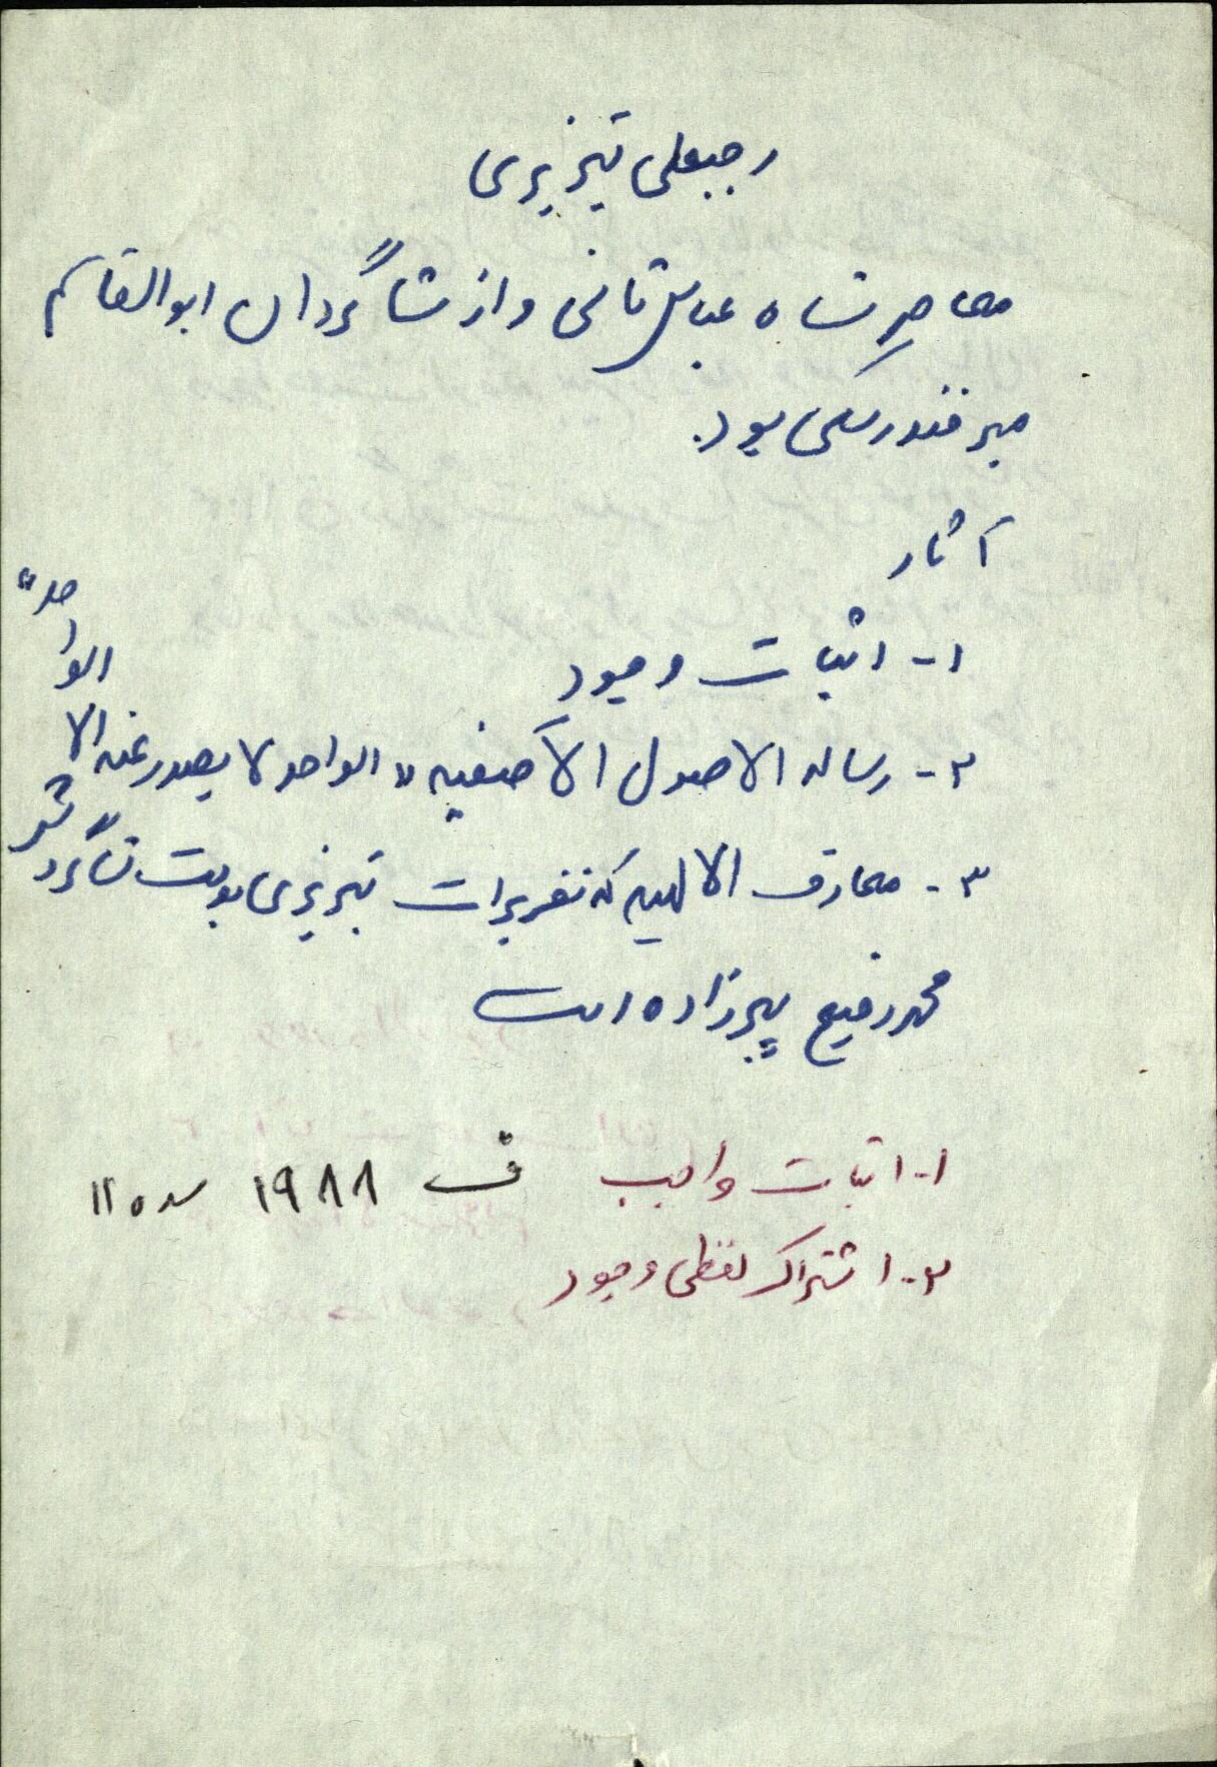 رجبعلی تبریزی
معاصرِ شاه عباس ثانی و از شاگردان ابوالقاسم
میرفندرسکی بود.
آثار
۱- اثبات وجود
۲- رساله الاصول الآصفیه «الواحد لا یصدر عنه الا الواحد»
۳- معارف الالهیه که تقریرات تبریزی بدست شاگردش
محمد رفیع پیرزاده است
۱- اثبات واجب ف ۱۹۸۸ سده ۱۱
۲- اشتراک لفظی وجود